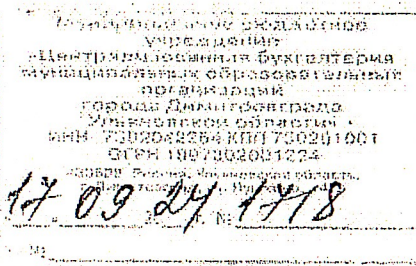 Муниципальное бюджетное
учреждение
«Централизованная бухгалтерия
муниципальных образовательных
организаций
города Димитровграда
Ульяновской области»
ИНН 7302022264 КПП 730201001
ОГРН
Россия, Ульяновская область,
17 09 24 г. № 1718
№